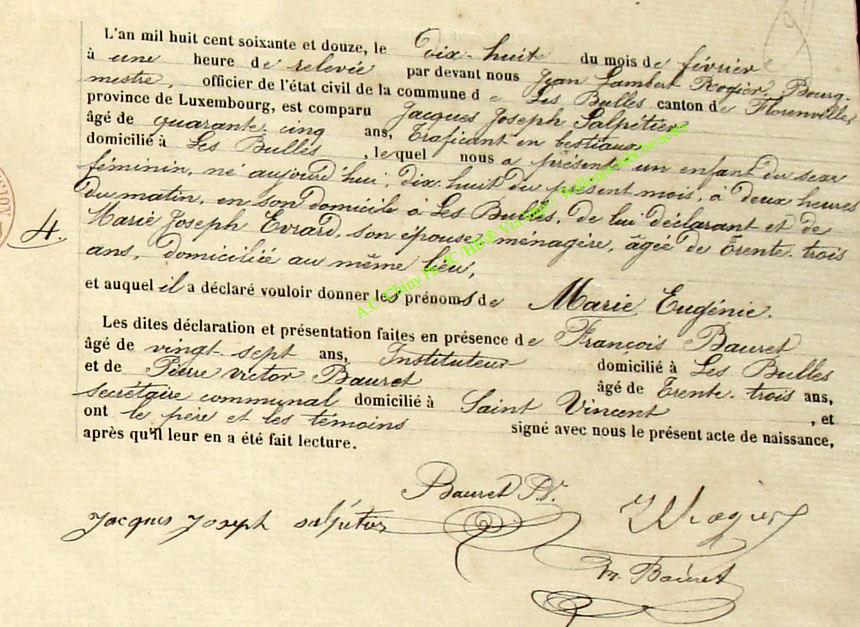 L'an mil huit cent soixante et douze, le dix-huit du mois de février
à une heure de relevée par devant nous Jean Lambert Rogier, Bourg-
mestre, officier de l'état civil de la commune de Les Bulles canton de Florenville
province de Luxembourg, est comparu Jacques Joseph Salpétier
âgé de quarante-cinq ans, traficant en bestiaux,
domicilié à Les Bulles, lequel nous a présenté un enfant du sexe
féminin, né aujourd'hui, dix-huit du présent mois, à deux heures
du matin, en son domicile à Les Bulles, de lui déclarant et de
4. Marie Joseph Evrard, son épouse, ménagère, âgée de trente-trois
ans, domiciliée au même lieu,
et auquel il a déclaré vouloir donner les prénoms de Marie Eugénie.
Les dites déclaration et présentation faites en présence de François Bauret
âgé de vingt-sept ans, Instituteur domicilié à Les Bulles
et de Pierre Victor Bauret âgé de trente-trois ans,
secrétaire communal domicilié à Saint Vincent, et
ont le père et les témoins signé avec nous le présent acte de naissance,
après qu'il leur en a été fait lecture.
Bauret P.V.
Jacques Joseph salpétier
Rogier
Bauret